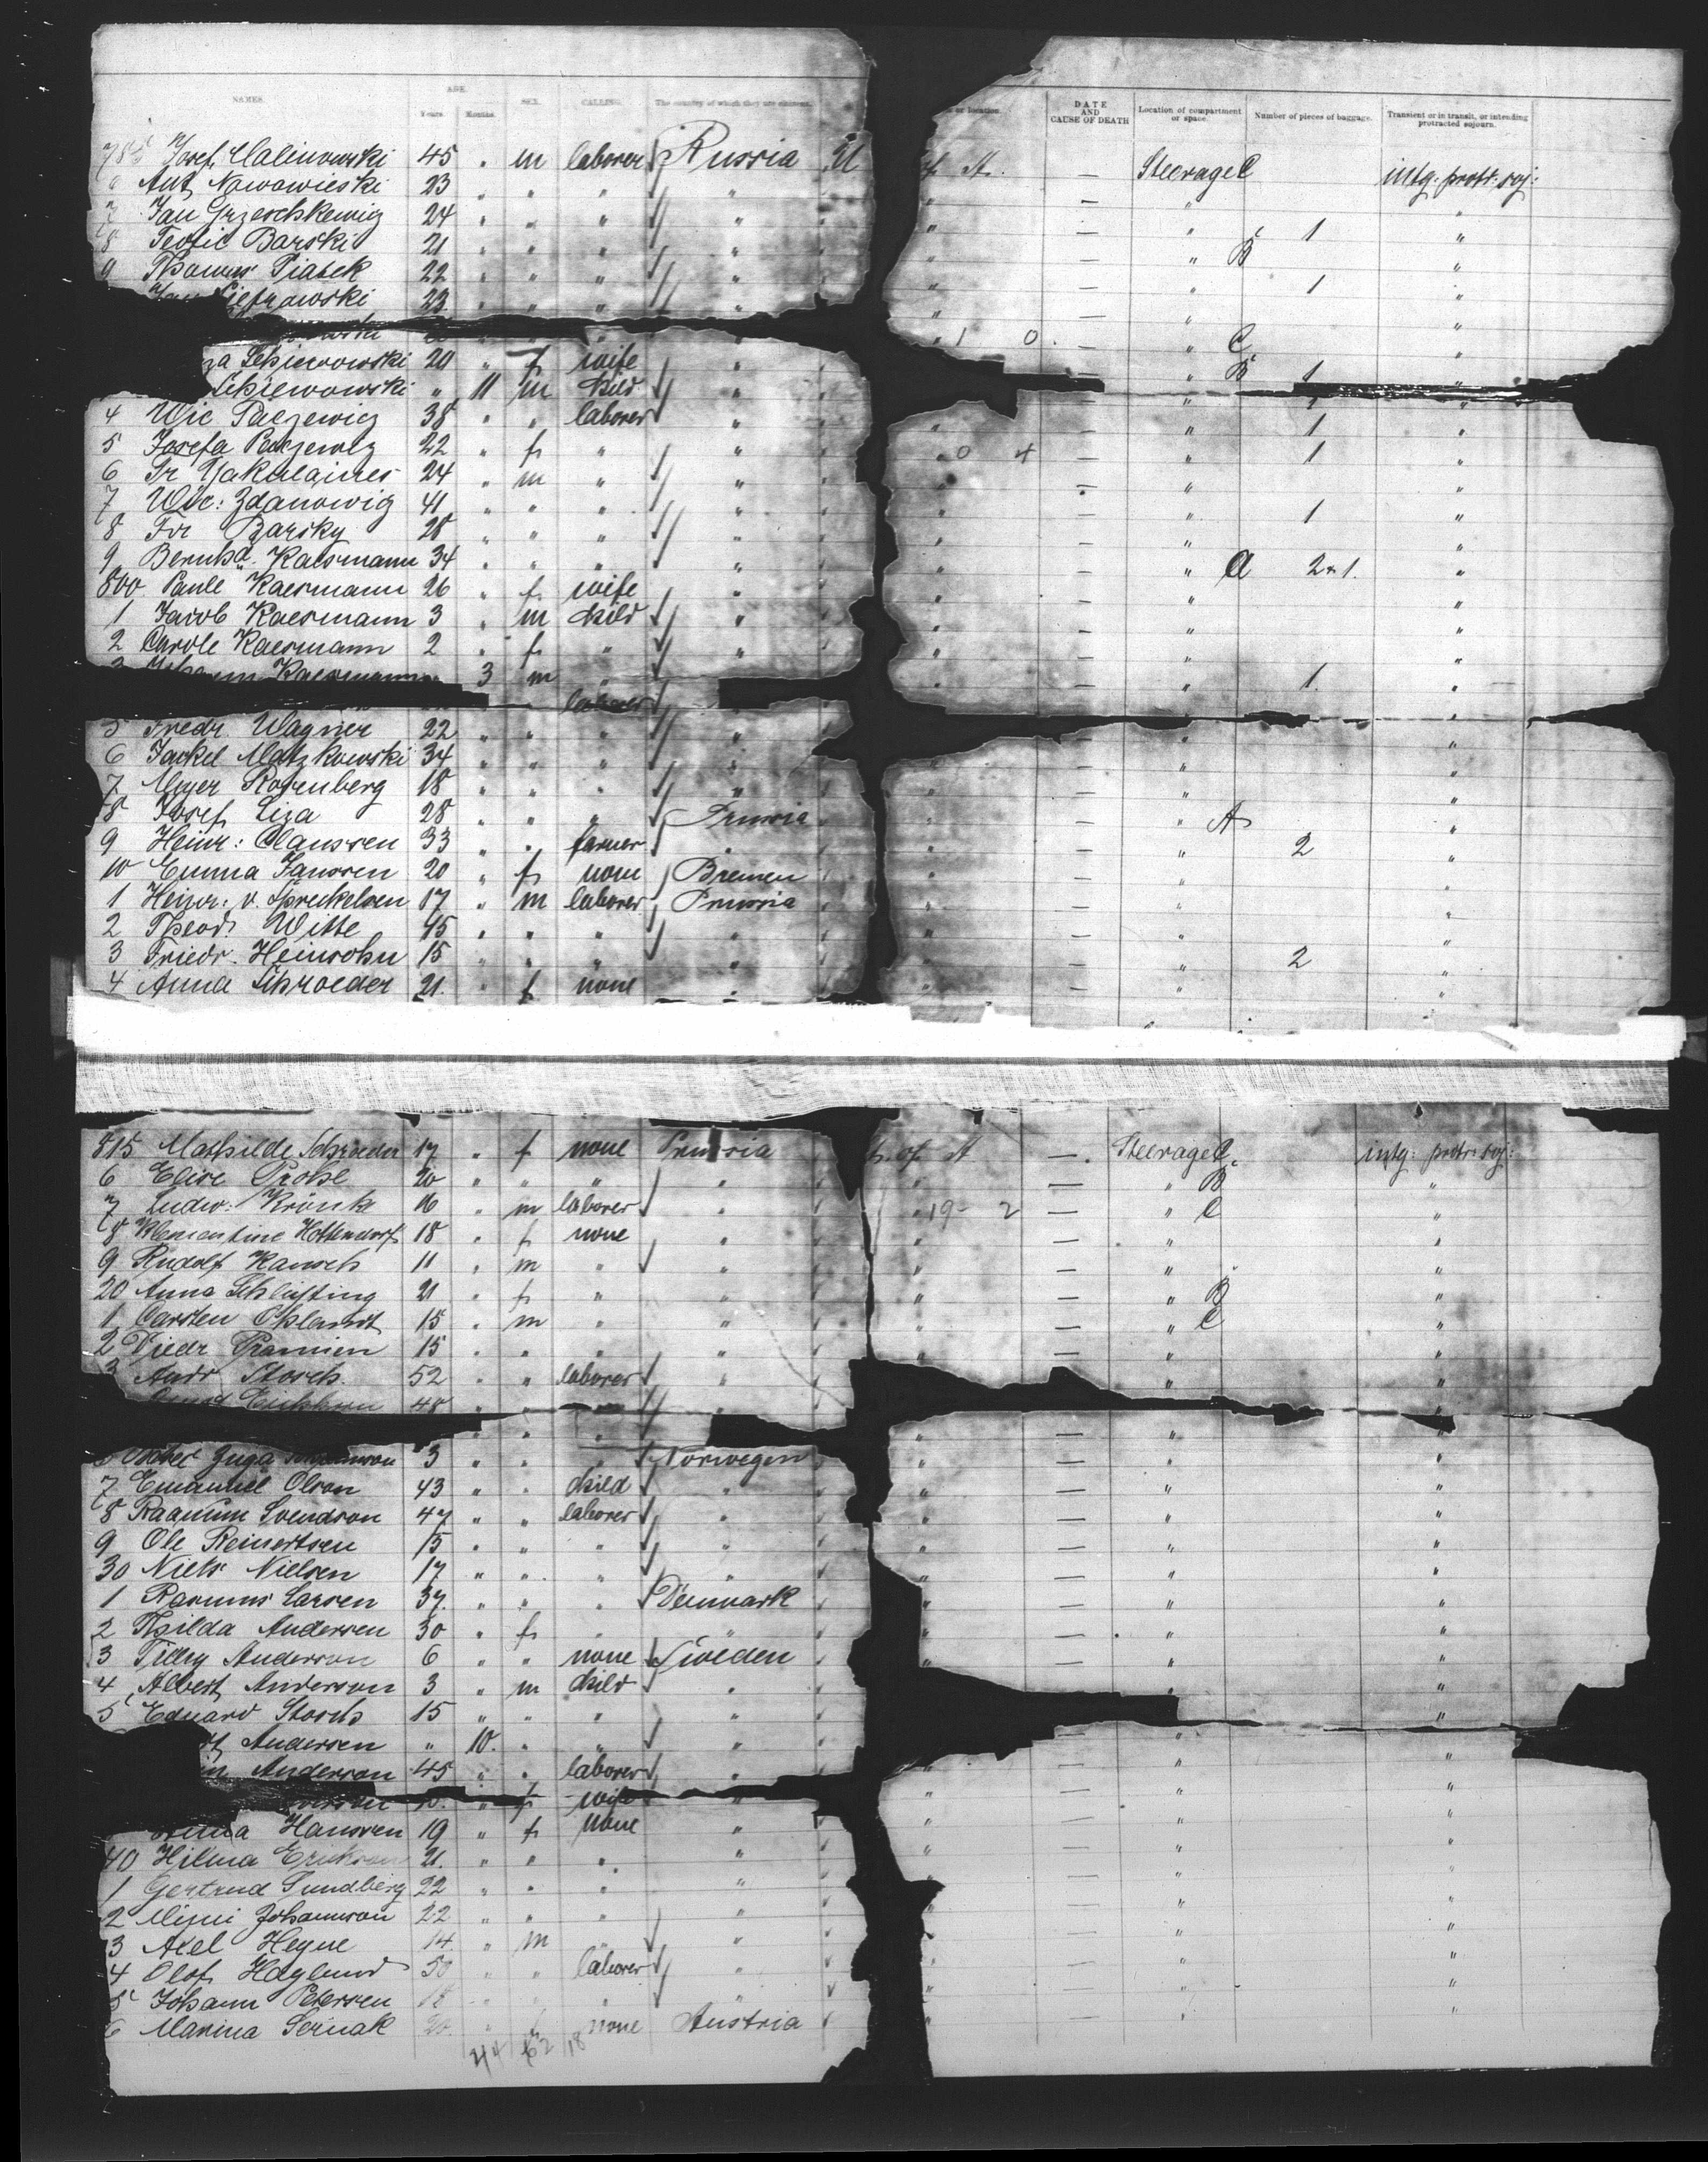 NAMES. AGE. Years. Months. SEX. CALLING. The country of which they are citizens. or location. DATE AND CAUSE OF DEATH Location of compartment or space. Number of pieces of baggage. Transient or in transit, or intending protracted sojourn.
785 Josef Malinowski 45 " m laborer Russia U of A. — Steerage C intg: protr: soj:
6 Ant. Nowowieski 23 " " " " " — " "
7 Jan Grzeschkewig 24 " " " " " — " 1 "
8 Teofic Barski 21 " " " " " — " B "
9 Thomas Piatek 22 " " " " " — " 1 "
Jan Pietrowski 23 " " " " " — " "
owski
za Schiewowski 20 " f wife " 1 0. — " C "
Schiewowski " 11 m child " — " B 1 "
4 Wic Paczewig 38 " " laborer " " — " 1 "
5 Josefa Paczewig 22 " f " " 0 4 — " 1 "
6 Fr Yakulaines 24 " m " " " — " "
7 Wic: Zdanowig 41 " " " " " — " 1 "
8 Fr Barsky 28 " " " " " — " "
9 Bernhd. Kaesmann 34 " " " " " — " A 2+1. "
800 Paule Kaesmann 26 " f wife " " — " "
1 Jacob Kaesmann 3 " m child " " — " "
2 Carole Kaesmann 2 " f " " " — " "
3 Kaesmann " 3 m " — 1. "
laborer
5 Fredr. Wagner 22 " " " " — " "
6 Jackel Matzkowski 34 " " " " " — " "
7 Meyer Rosenberg 18 " " " " " — " "
8 Josef Liza 28 " " " Prussia " — " A "
9 Heinr: Claussen 33 " " farmer " " — " 2 "
10 Emma Janssen 20 " f none Bremen " — " "
1 Heinr: v. Spreckelsen 17 " m laborer Prussia " — " "
2 Theod. Witte 45 " " " " " — " "
3 Friedr. Heinsohn 15 " " " " " — " 2 "
4 Anna Schroeder 21. " f none " " — " "
815 Mathilde Schroeder 17 " f none Prussia of A — Steerage C. intg: protr: soj:
6 Elise Probl 20 " " " " " — " B "
7 Ludw: Kronk 16 " m laborer " " 19- 2 — " C "
8 Klementine Hottendorf 18 " f none " " — " "
9 Rudolf Kansch 11 " m " " " — " "
20 Anna Schlichting 21 " f " " " — " B "
1 Carsten Ohlandt 15 " m " " " — " C "
2 Diedr 15 " " " " " — " "
3 Andr Storch. 52 " " laborer " — " "
Eichhorn 48 " " " " "
Inga 3 " " " Norwegen " — " "
7 Emanuel Olson 43 " " child " " — " "
8 Svendson 47 " " laborer " " — " "
9 Ole Reinertsen 15 " " " " " — " "
30 Niels Nielsen 17 " " " " " — " "
1 Rasmus Larsen 37. " " " Denmark " — " "
2 Thilda Andersen 30 " f " " " — " "
3 Tilly Anderson 6 " " none Sweden " — " "
4 Albert Anderson 3 " m child " — " "
5 Eduard Storch 15 " " " " "
Andersen " 10. " " " — " "
Anderson 45 " " laborer " — " "
f wife " " — " "
Hansen 19 " f none " " — " "
40 Hilma Erikson 21. " " " " " — " "
1 Gertrud Sundberg 22 " " " " " — " "
2 Mimi Johannson 22 " " " " " — " "
3 Axel Heyne 14. " m " " " — " "
4 Olof Haglund 50 " " laborer " " — " "
5 Johann Petersen 18 " " " " " — " "
6 Marina Sernak 20. " f none Austria " — " "
44 62 18